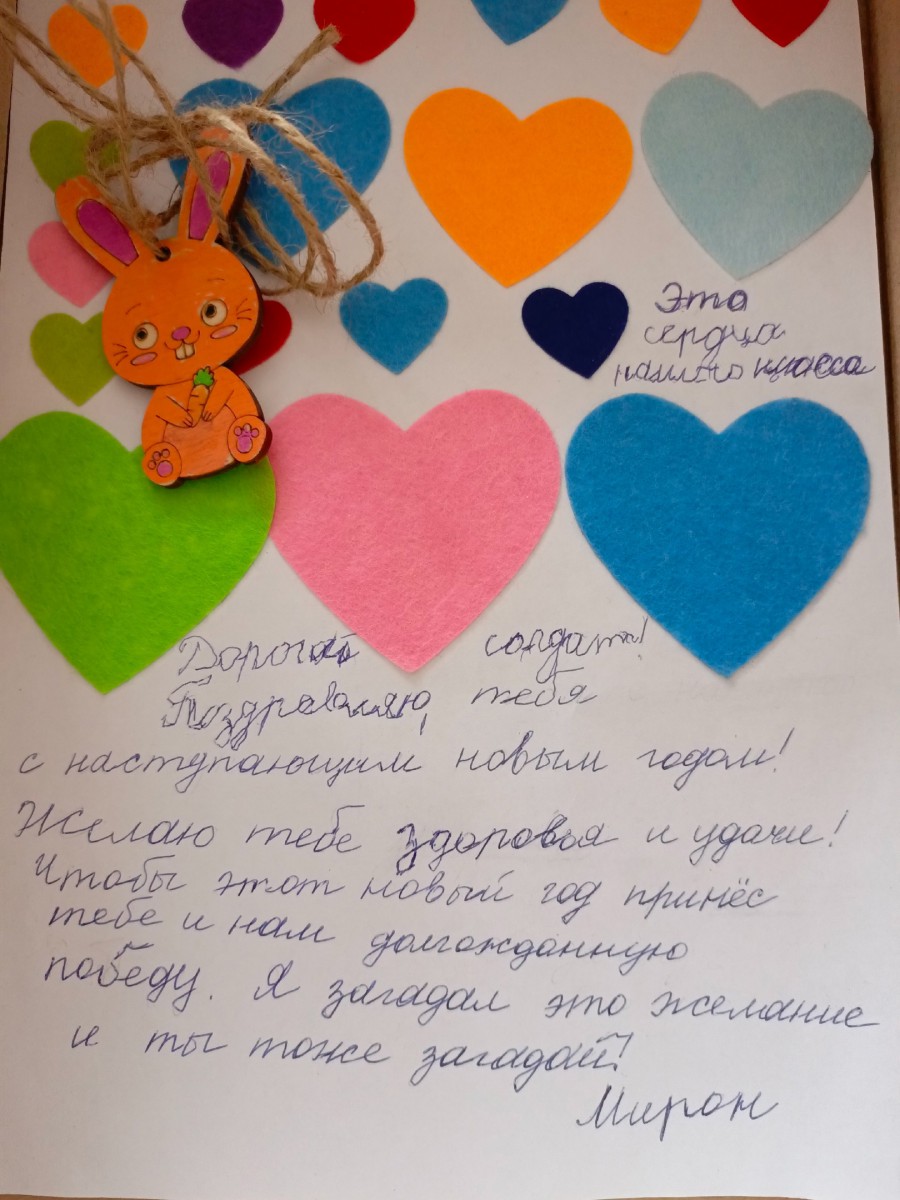 Это
сердца
нашего класса
Дорогой солдат!
Поздравляю тебя
с наступающим новым годом!
Желаю тебе здоровья и удачи!
Чтобы этот новый год принёс
тебе и нам долгожданную
победу. Я загадал это желание
и ты тоже загадай!
Мирон